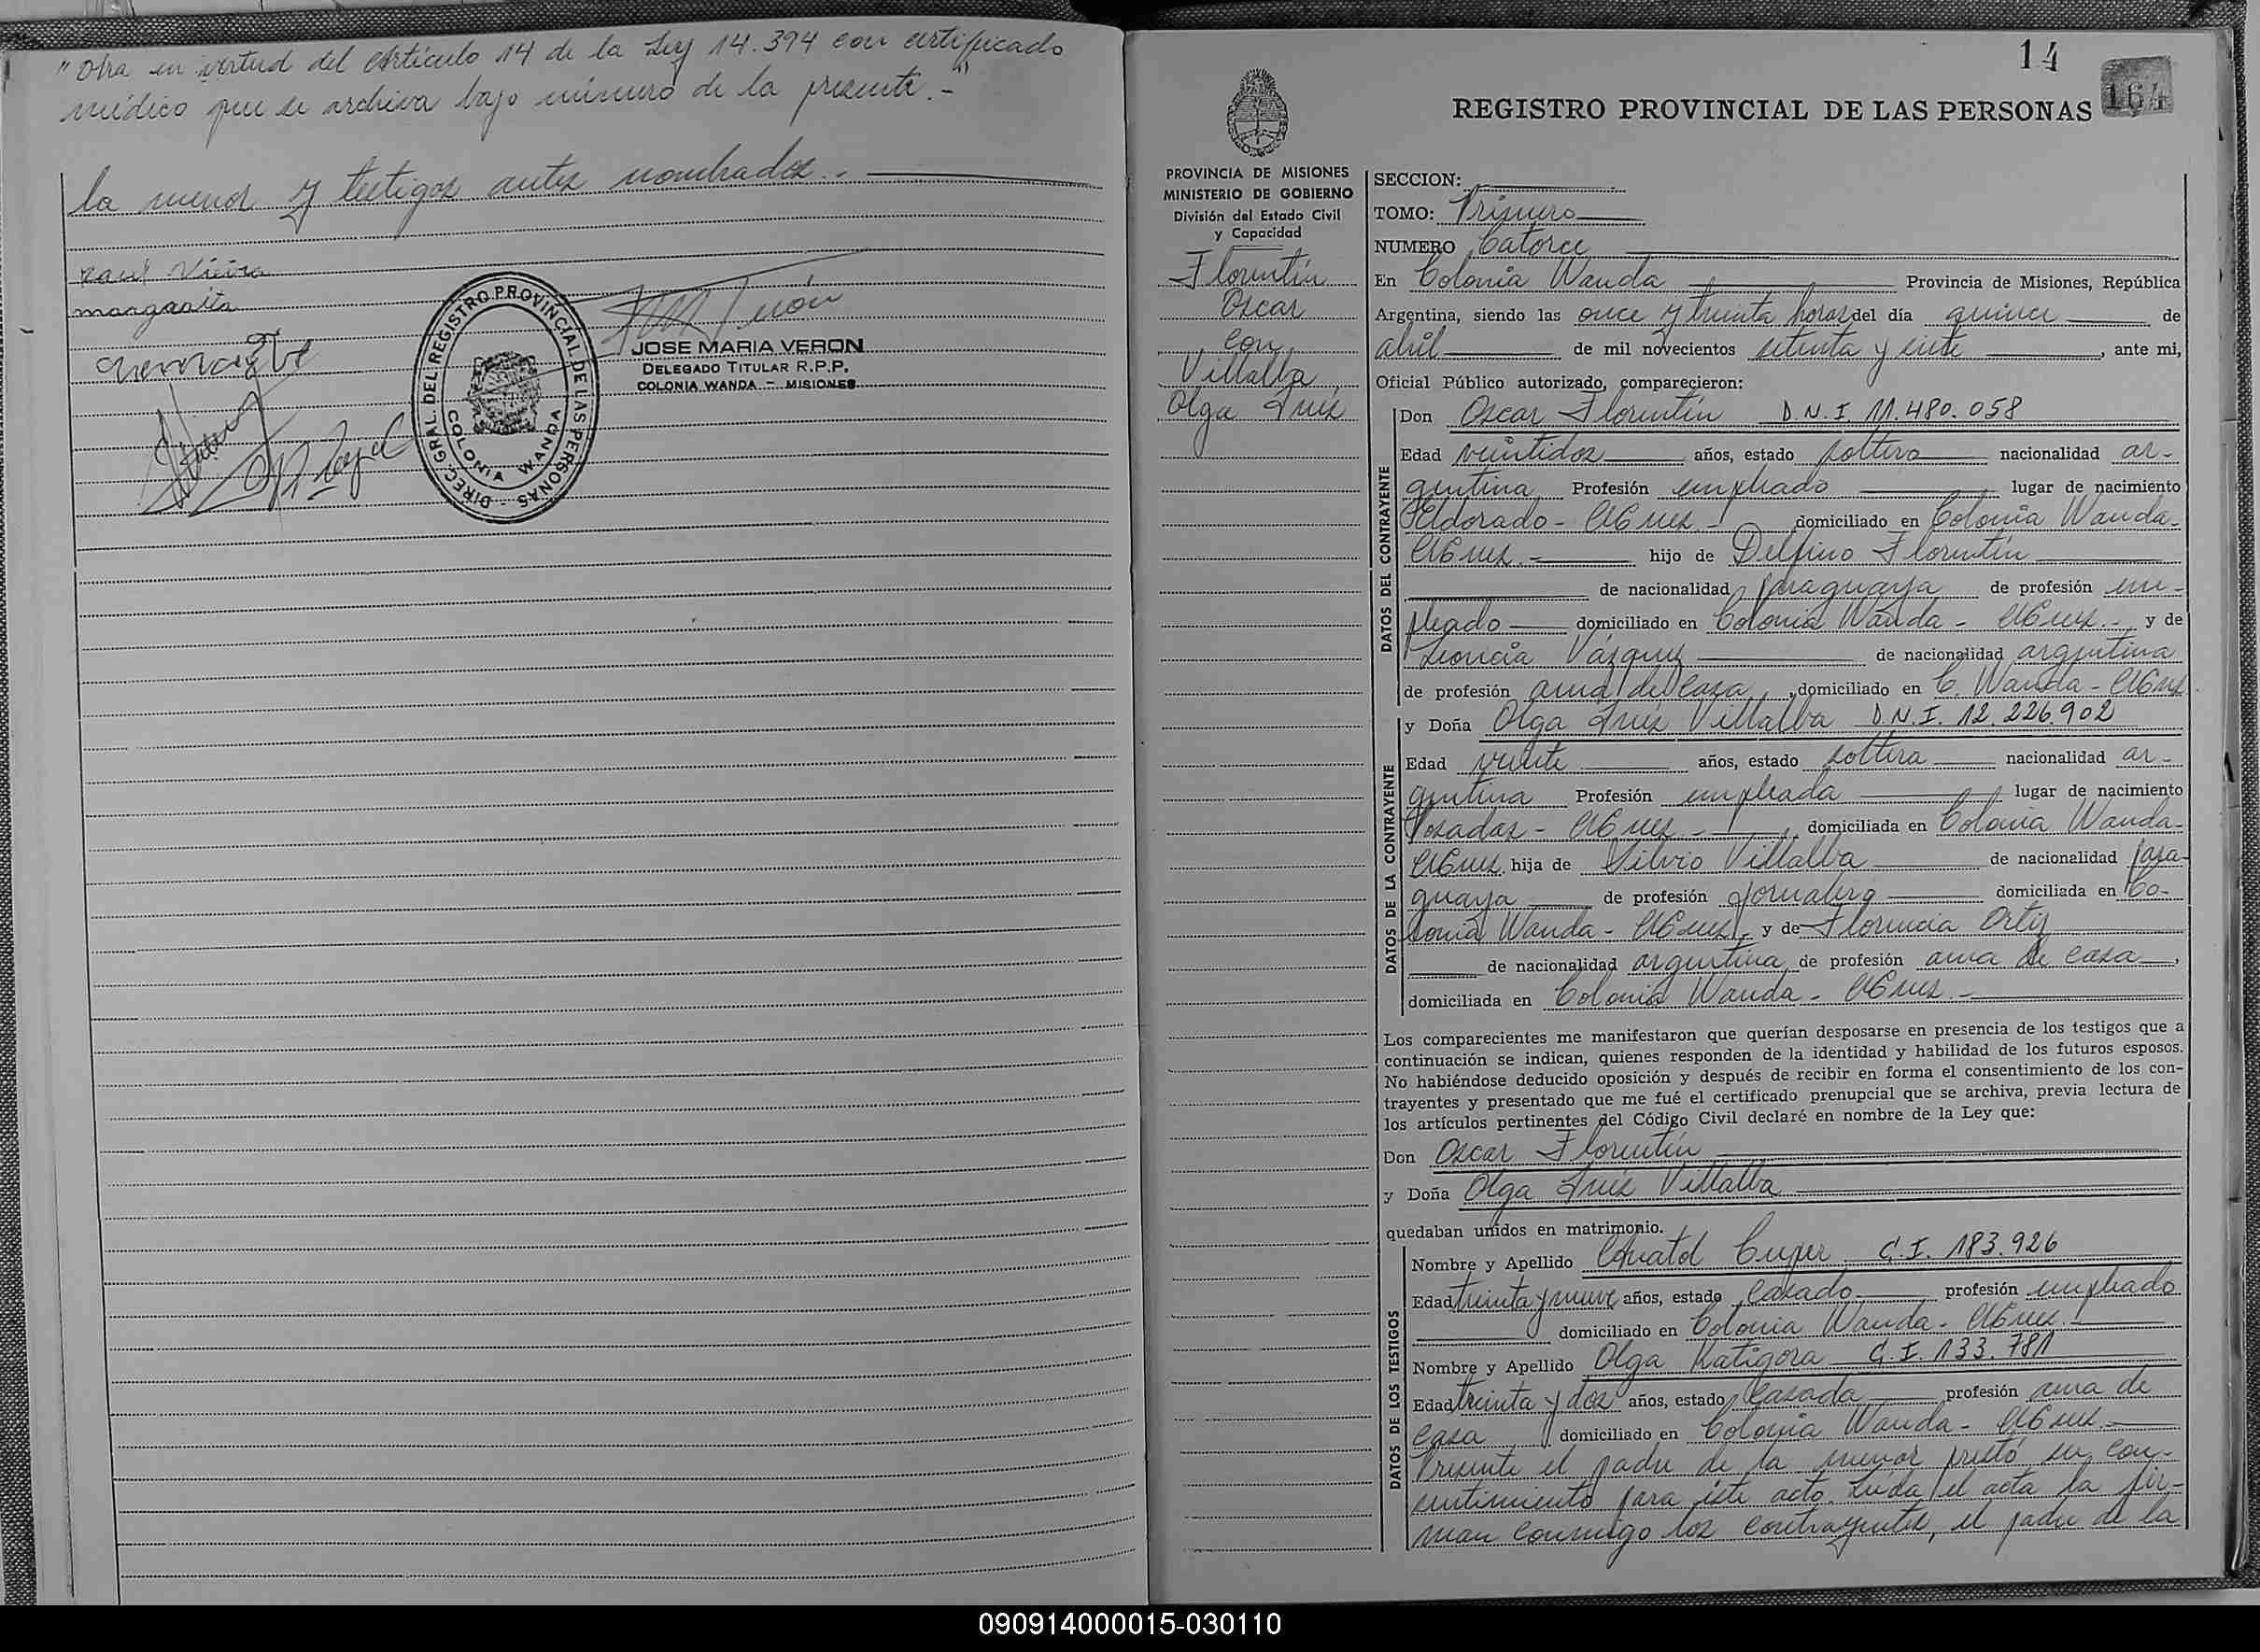 "Otra en virtud del Artículo 14 de la Ley 14.394 con certificado
médico que se archiva bajo número de la presente.-"
la menor y testigos antes nombrados.-
Raul Vieira
margarita
DIREC. GRAL. DEL REGISTRO PROVINCIAL DE LAS PERSONAS -
COLONIA WANDA
JOSE MARIA VERON
DELEGADO TITULAR R.P.P.
COLONIA WANDA - MISIONES
14
164
REGISTRO PROVINCIAL DE LAS PERSONAS
PROVINCIA DE MISIONES
MINISTERIO DE GOBIERNO
División del Estado Civil
y Capacidad
Florentín
Oscar
con
Villalba
Olga Inés
SECCION:
TOMO: Primero
NUMERO Catorce
En Colonia Wanda Provincia de Misiones, República
Argentina, siendo las once y treinta horas del día quince de
abril de mil novecientos setenta y siete, ante mi,
Oficial Público autorizado, comparecieron:
DATOS DEL CONTRAYENTE
Don Oscar Florentín D.N.I. 11.480.058
Edad veintidos años, estado soltero nacionalidad ar-
gentina Profesión empleado lugar de nacimiento
Eldorado - Mnes.- domiciliado en Colonia Wanda-
Mnes.- hijo de Delfino Florentín
de nacionalidad paraguaya de profesión em-
pleado domiciliado en Colonia Wanda - Mnes.- y de
Leoncia Vázquez de nacionalidad argentina
de profesión ama de casa, domiciliado en C. Wanda - Mnes.
DATOS DE LA CONTRAYENTE
y Doña Olga Inés Villalba D.N.I. 12.226.902
Edad veinte años, estado soltera nacionalidad ar-
gentina Profesión empleada lugar de nacimiento
Posadas - Mnes.-, domiciliada en Colonia Wanda-
Mnes. hija de Silvio Villalba de nacionalidad para-
guaya de profesión jornalero domiciliada en Co-
lonia Wanda - Mnes.- y de Florencia Ortiz
de nacionalidad argentina de profesión ama de casa,
domiciliada en Colonia Wanda - Mnes.-
Los comparecientes me manifestaron que querían desposarse en presencia de los testigos que a
continuación se indican, quienes responden de la identidad y habilidad de los futuros esposos.
No habiéndose deducido oposición y después de recibir en forma el consentimiento de los con-
trayentes y presentado que me fué el certificado prenupcial que se archiva, previa lectura de
los artículos pertinentes del Código Civil declaré en nombre de la Ley que:
Don Oscar Florentín
y Doña Olga Inés Villalba
quedaban unidos en matrimonio.
DATOS DE LOS TESTIGOS
Nombre y Apellido C.I. 183.926
Edad treinta y nueve años, estado casado profesión empleado
domiciliado en Colonia Wanda - Mnes.
Nombre y Apellido Olga Katigora C.I. 133.781
Edad treinta y dos años, estado casada profesión ama de
casa domiciliado en Colonia Wanda - Mnes.-
Presente el padre de la menor prestó su con-
sentimiento para éste acto. Leída el acta la fir-
man conmigo los contrayentes, el padre de la
090914000015-030110